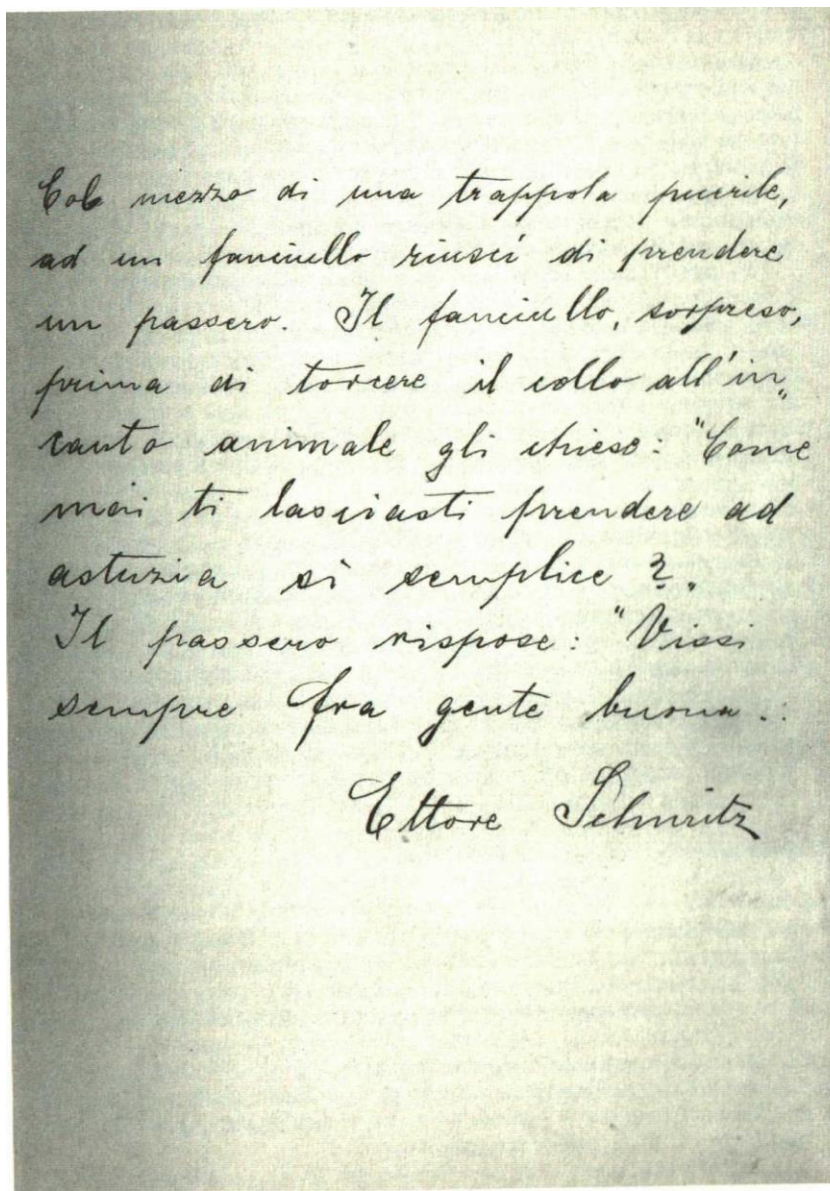 Col mezzo di una trappola puerile,
ad un fanciullo riuscì di prendere
un passero. Il fanciullo, sorpreso,
prima di torcere il collo all'in„
cauto animale gli chiese: "Come
mai ti lasciasti prendere ad
astuzia sì semplice?„
Il passero rispose: "Vissi
sempre fra gente buona.„
Ettore Schmitz